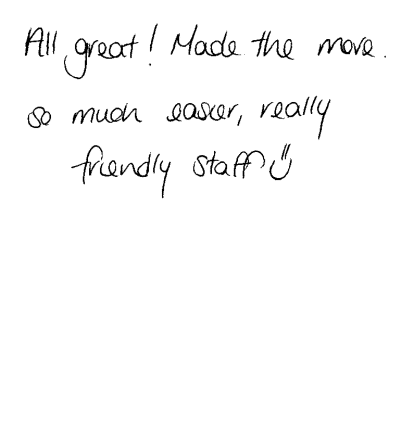 All great! Made the move.
so much easier, really
friendly staff ü